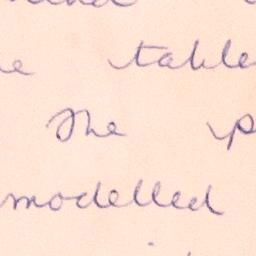 table
The p
modelled